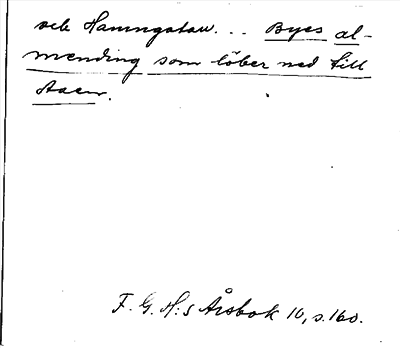 och Hamngatan... Byes al-
mending som löber ned till
Aaen.
F. G. H:s Årsbok 10, s. 160.